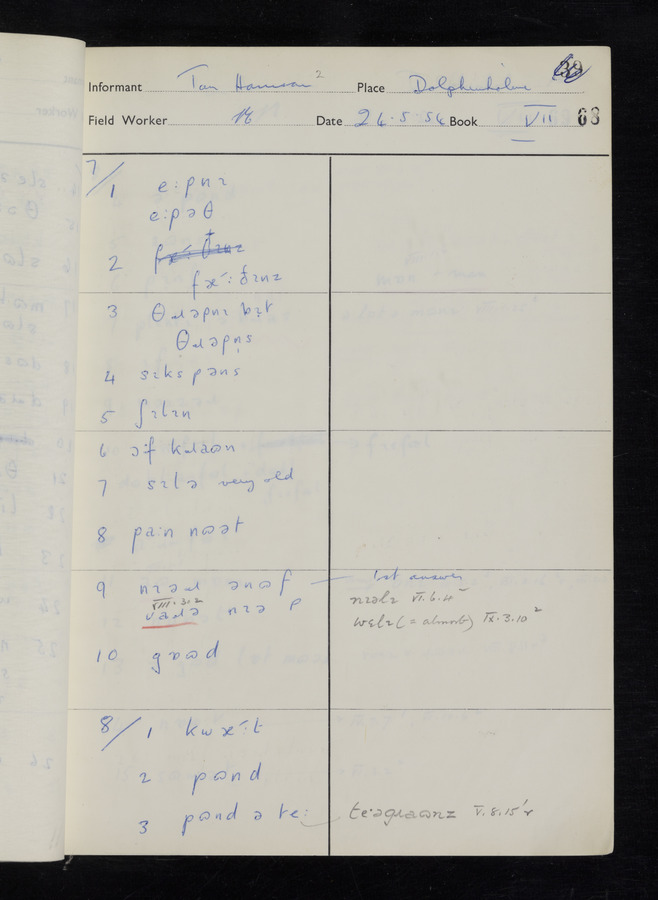 Informant Tom Harrison 2 Place Dolphinholme
Field Worker Date 26.5.54 Book VII 68
7/1 e:pnɪ
e:pəθ
2
fæ´:ðɪnz
3 θɹəpnɪ bɪt
θɹəpn̩s
4 sɪks pəns
5 ʃɪlɪn
6 ə:f kɹaʊn
7 sɪlə very old
8 pa:n nʊət
9 nɪəɹ ənʊf 1st answer
VIII.3.2
vaɹə nɪə
nɪəlɪ VI.6.4
wɛlɪ (= almost) IX.3.10 2
10 gɒʊd
8/1 kwæ´:t
2 pʊnd
3 pʊnd ə te: te:əgɹaʊnz V.8.15 r